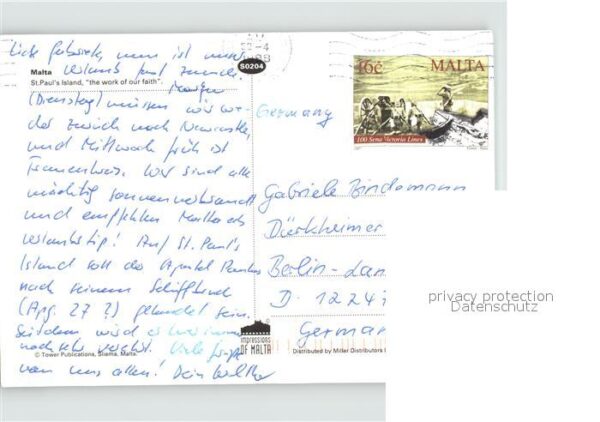 Liebe Gabriele, nun ist unser
Urlaub fast zuende.
Morgen
(Dienstag) müssen wir wie-
der zurück nach
und Mittwoch früh ist
Wir sind alle
mächtig sonnenverbrannt
und empfehlen Malta als
Urlaubstip! Auf St. Paul's
Island soll der Apostel Paulus
nach seinem Schiffbruch
(Apg. 27 ?) gelandet sein.
Seitdem wird er hier immer
noch sehr verehrt. Viele Grüße
von uns allen! Dein
Malta
St.Paul's Island, "the work of our faith".
S0204
© Tower Publications, Sliema, Malta.
impressions
OF MALTA
Distributed by Miller Distributors
16c MALTA
100 Sena Victoria Lines
Germany
Gabriele Bindemann
Dürkheimer
Berlin-Lan
D. 1224
Germa
privacy protection
Datenschutz